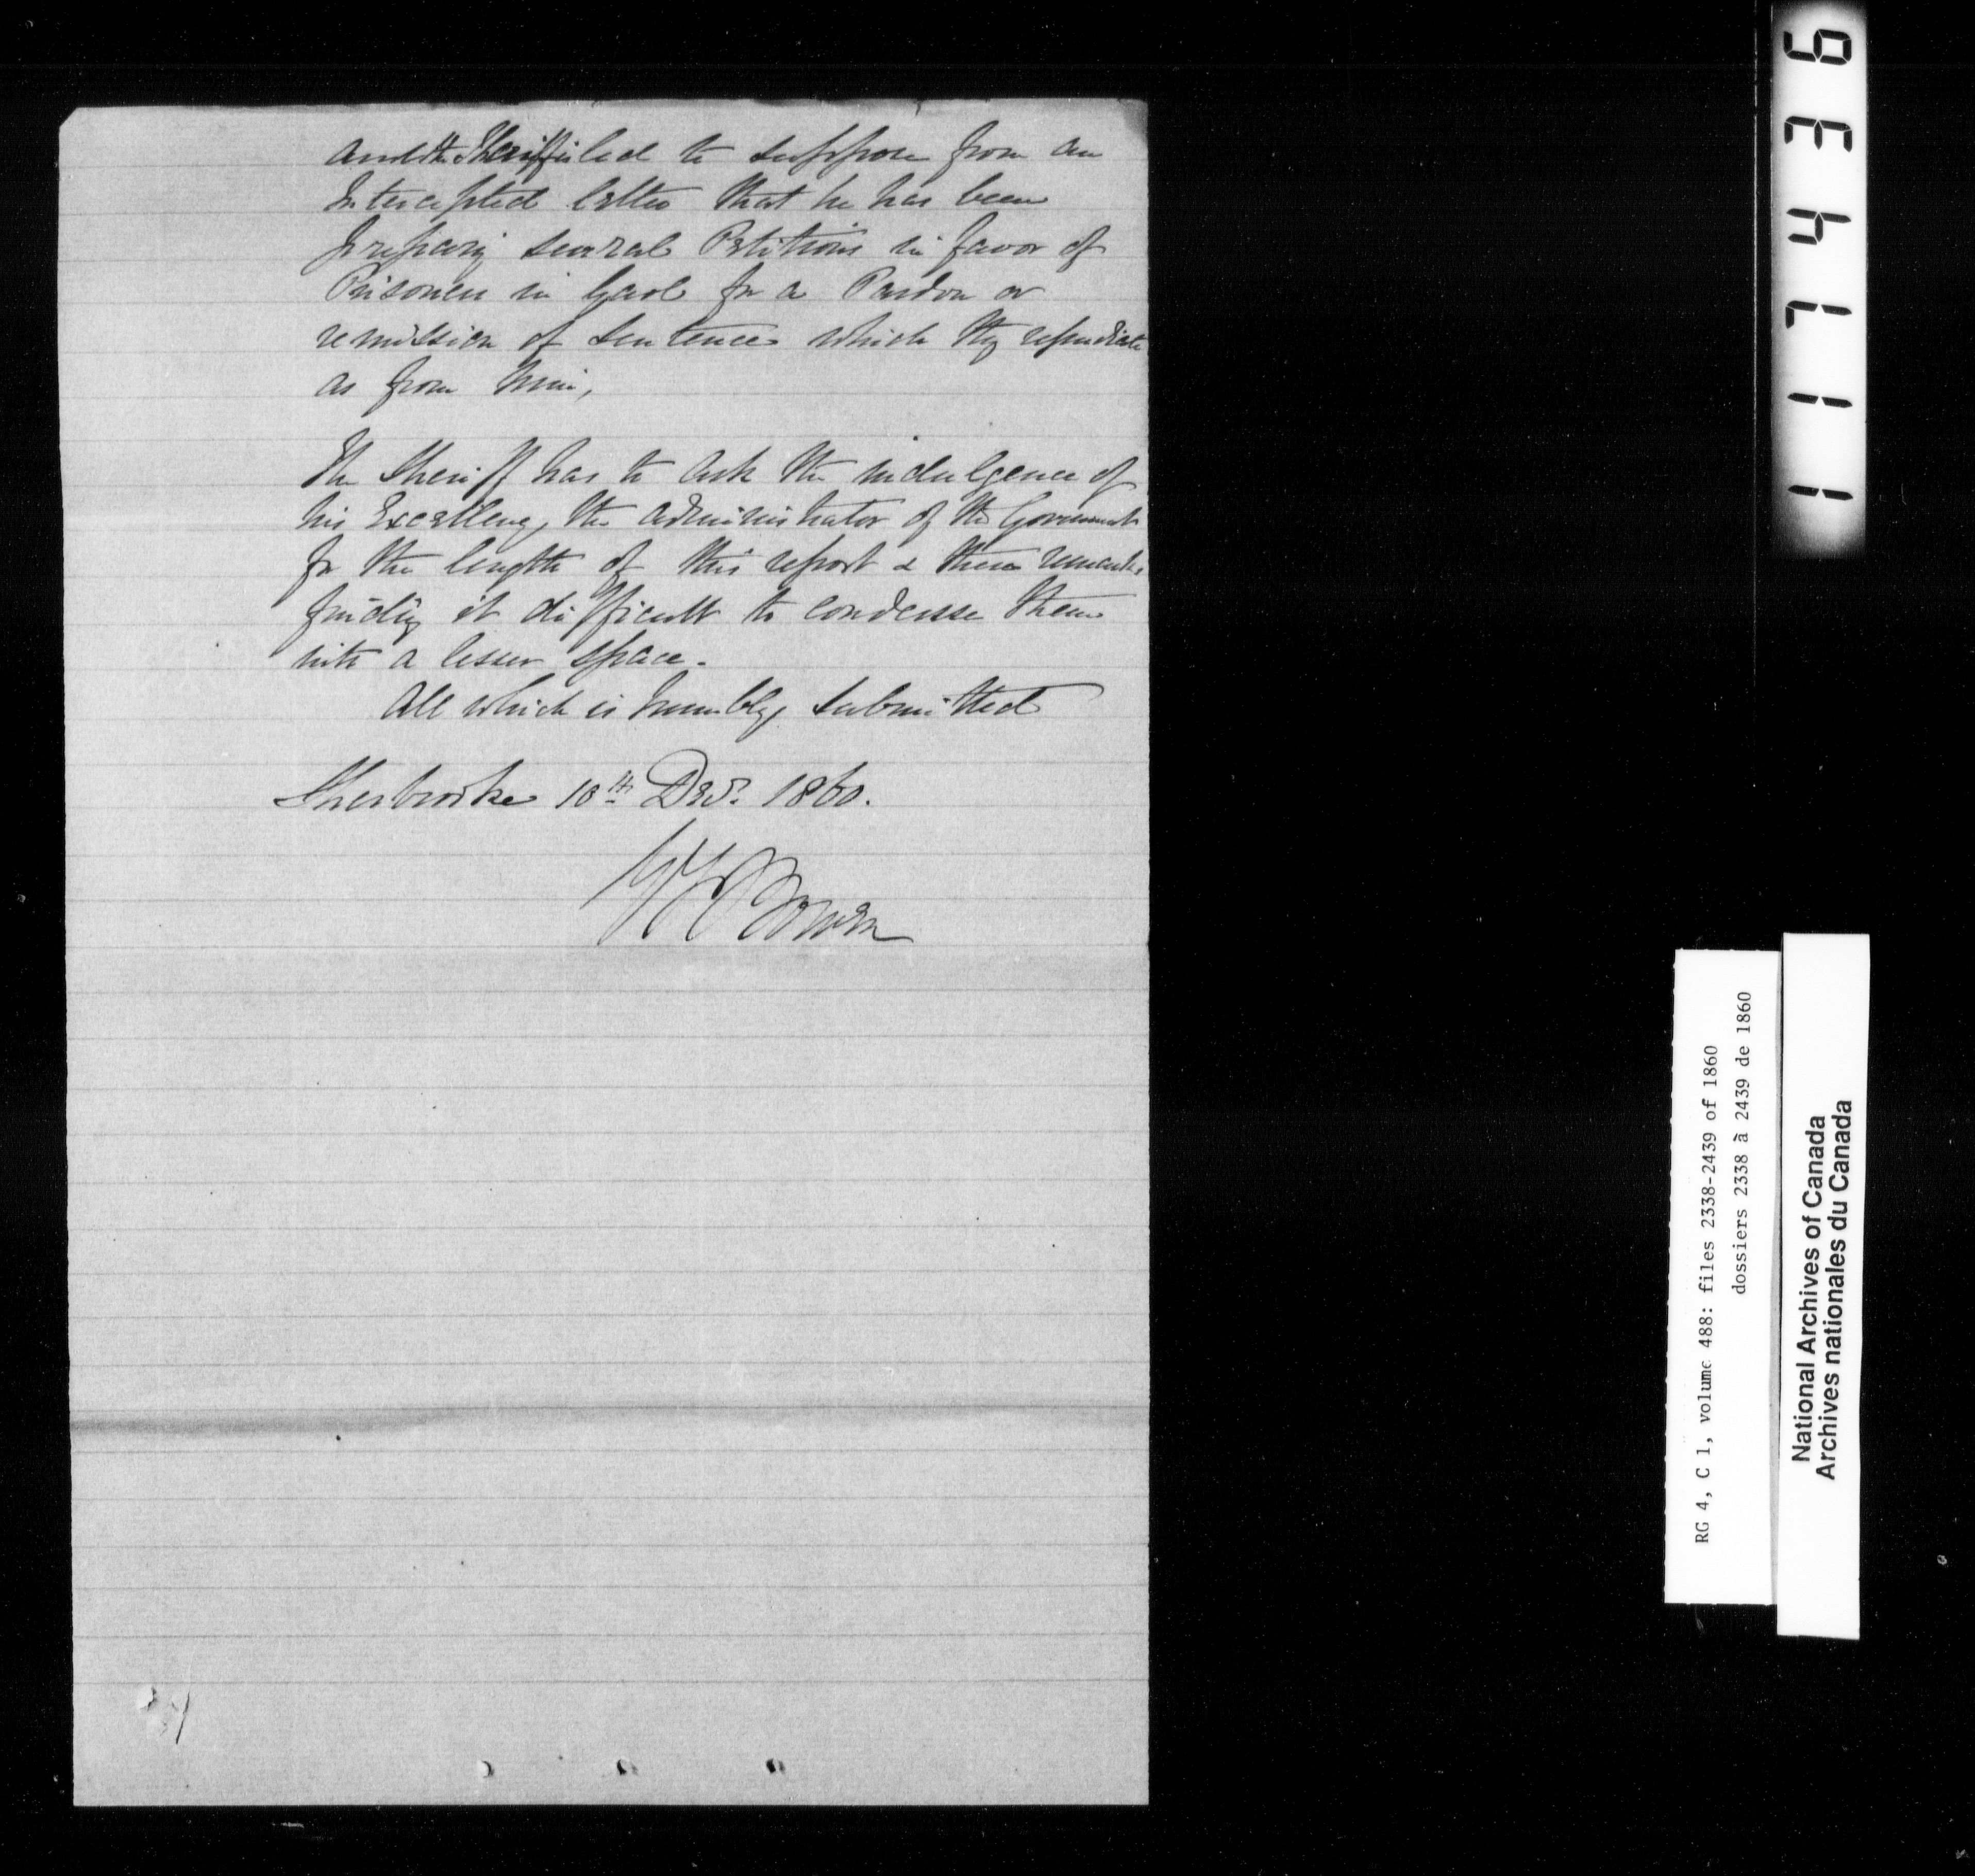 and the Sheriff is led to suppose from an
Intercepted letter that he has been
preparing several Petitions in favor of
Prisoners in Gaol for a Pardon or
remission of Sentence which they repudiate
as from him,
The Sheriff has to ask the indulgence of
his Excellency, the Administrator of the Government
for the length of this report & these remarks
finding it difficult to condense them
into a lesser space.
All which is humbly submitted
Sherbrooke 10th Decr. 1860.
Bowen
117436
RG 4, C 1, volume 488: files 2338-2439 of 1860
dossiers 2338 à 2439 de 1860
National Archives of Canada
Archives nationales du Canada